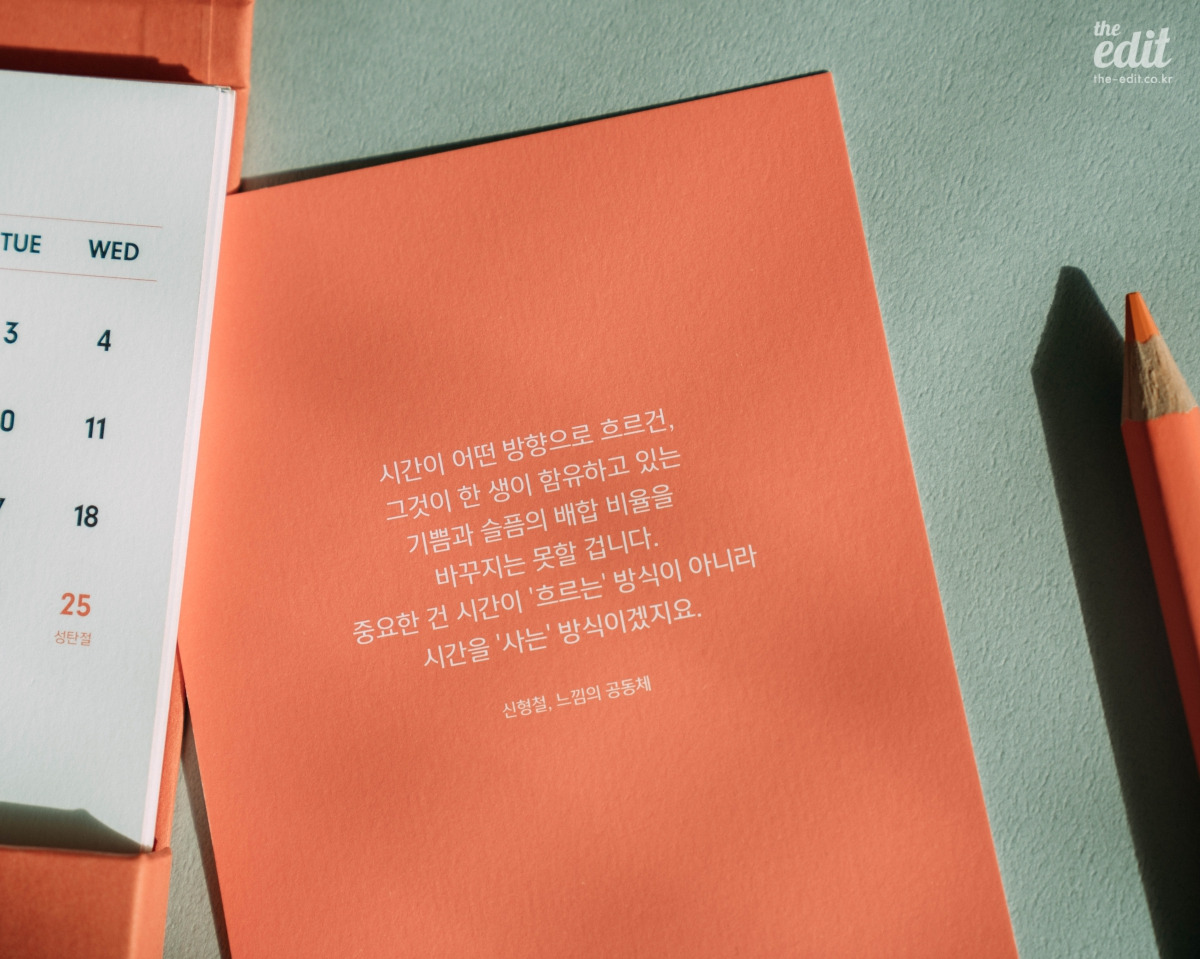 the
edit
the-edit.co.kr
TUE WED
3 4
11
18
25
성탄절
시간이 어떤 방향으로 흐르건,
그것이 한 생이 함유하고 있는
기쁨과 슬픔의 배합 비율을
바꾸지는 못할 겁니다.
중요한 건 시간이 '흐르는' 방식이 아니라
시간을 '사는' 방식이겠지요.
신형철, 느낌의 공동체